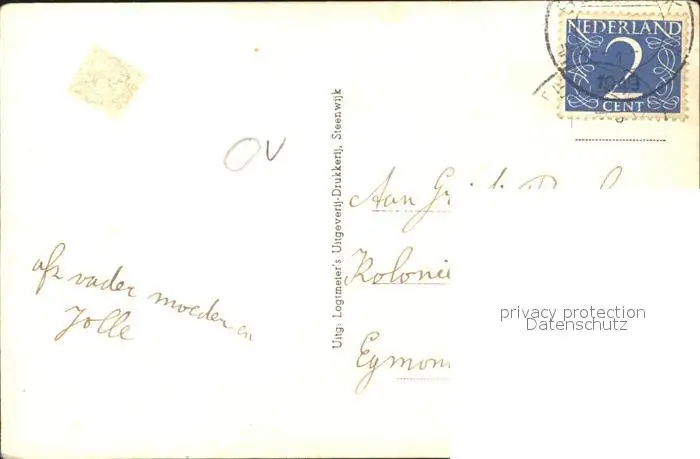 NEDERLAND
2
CENT
OV
Uitg: Logtmeier's Uitgeverij-Drukkerij, Steenwijk
Aan
Kolonie
Egmon
afz vader moeder en
Jolle
privacy protection
Datenschutz